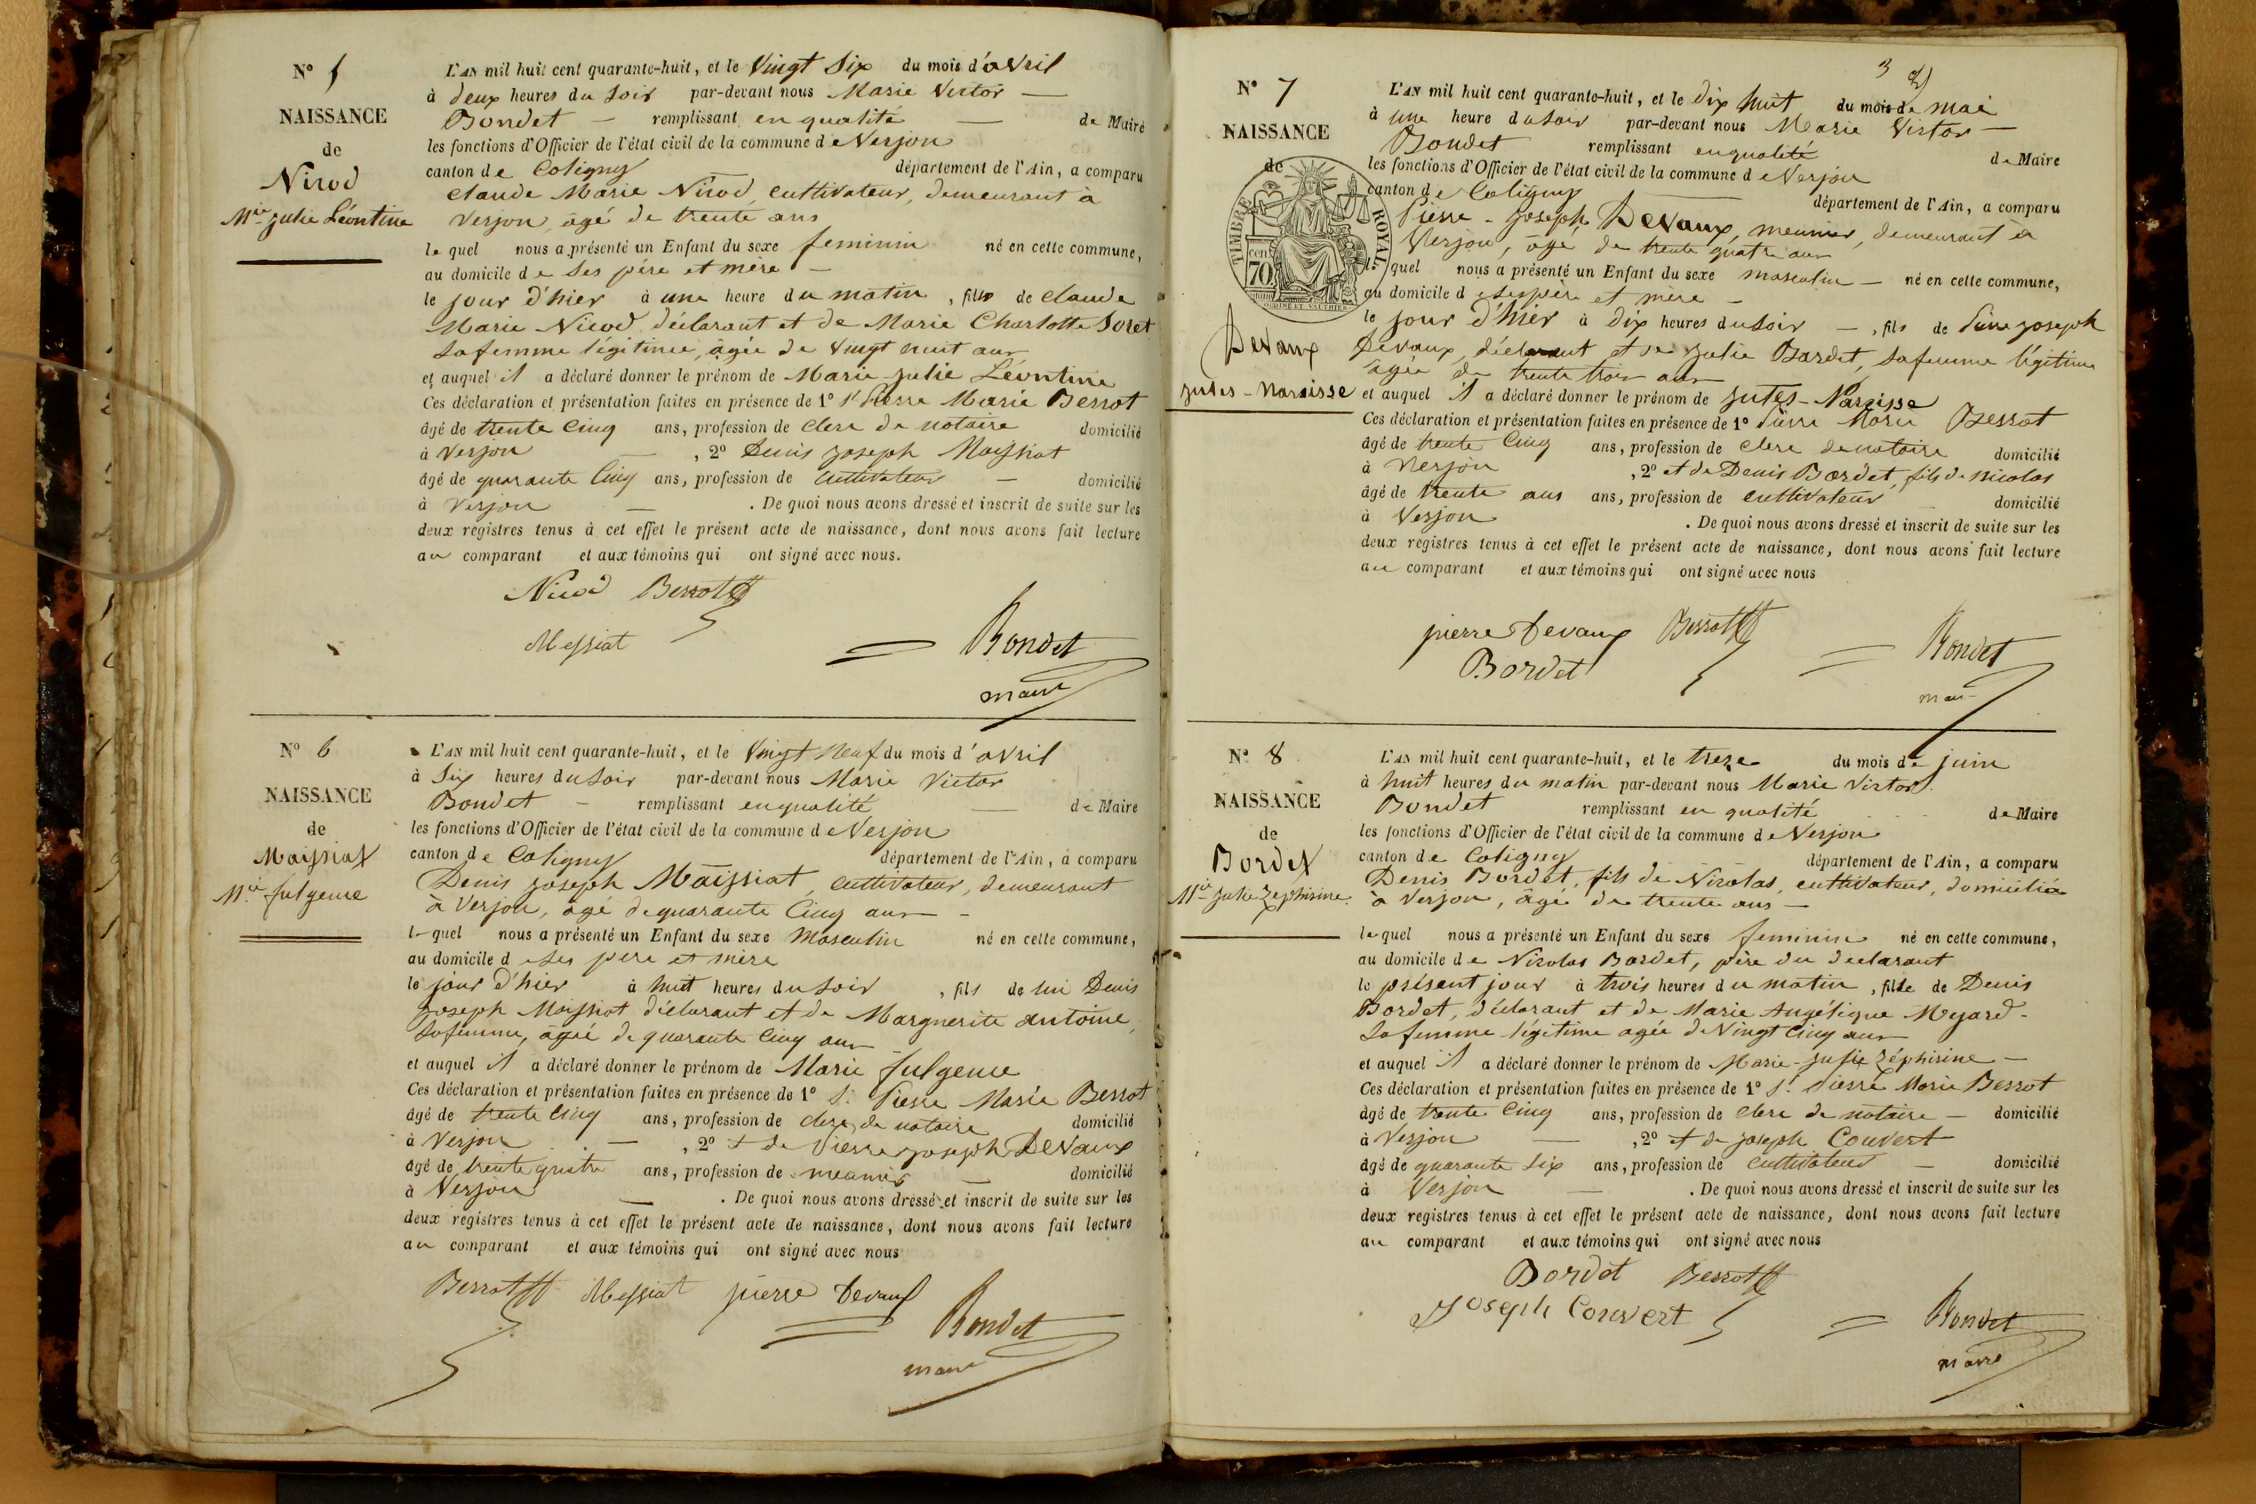 N° 5
NAISSANCE
de
Nicod
Mie Julie Léontine
L'AN mil huit cent quarante-huit, et le Vingt Six du mois d'avril
à deux heures du soir par-devant nous Marie Victor —
Bondet — remplissant en qualité — de Maire
les fonctions d'Officier de l'état civil de la commune de Verjon
canton de Coligny département de l'Ain, a comparu
Claude Marie Nicod, cultivateur, demeurant à
Verjon, âgé de trente ans
lequel nous a présenté un Enfant du sexe feminin né en cette commune,
au domicile de ses père et mère —
le jour d'hier à une heure du matin, fille de Claude
Marie Nicod, déclarant et de Marie Charlotte
sa femme légitime, âgée de vingt huit ans
et auquel il a déclaré donner le prénom de Marie Julie Léontine
Ces déclaration et présentation faites en présence de 1° Sr Pierre Marie Berrot
âgé de trente cinq ans, profession de clerc de notaire domicilié
à Verjon —, 2° Denis Joseph Maissiat
âgé de quarante cinq ans, profession de cultivateur — domicilié
à Verjon — . De quoi nous avons dressé et inscrit de suite sur les
deux registres tenus à cet effet le présent acte de naissance, dont nous avons fait lecture
au comparant et aux témoins qui ont signé avec nous.
Nicod Berrot
Messiat Bondet
maire
N° 6
NAISSANCE
de
Maissiat
Mie fulgence
L'AN mil huit cent quarante-huit, et le Vingt Neuf du mois d'avril
à six heures du soir par-devant nous Marie Victor
Bondet — remplissant en qualité — de Maire
les fonctions d'Officier de l'état civil de la commune de Verjon
canton de Coligny département de l'Ain, a comparu
Denis Joseph Maissiat, cultivateur, demeurant
à Verjon, âgé de quarante cinq ans —
lequel nous a présenté un Enfant du sexe Masculin né en cette commune,
au domicile de ses père et mère
le jour d'hier à huit heures du soir, fils de lui Denis
Joseph Maissiat déclarant et de Marguerite Antoine,
sa femme, âgée de quarante cinq ans
et auquel il a déclaré donner le prénom de Marie fulgence
Ces déclaration et présentation faites en présence de 1° Sr Pierre Marie Berrot
âgé de trente cinq ans, profession de clerc de notaire domicilié
à Verjon —, 2° et de Pierre Joseph Devaux
âgé de trente quatre ans, profession de meunier — domicilié
à Verjon — . De quoi nous avons dressé et inscrit de suite sur les
deux registres tenus à cet effet le présent acte de naissance, dont nous avons fait lecture
au comparant et aux témoins qui ont signé avec nous
Berrot Messiat pierre Devaux
Bondet
maire
3
N° 7
NAISSANCE
de
TIMBRE ROYAL
70 cen
Devaux
Jules-Narcisse
L'AN mil huit cent quarante-huit, et le dix huit du mois de mai
à une heure du soir par-devant nous Marie Victor —
Bondet remplissant en qualité de Maire
les fonctions d'Officier de l'état civil de la commune de Verjon
canton de Coligny département de l'Ain, a comparu
Pierre-Joseph Devaux, meunier, demeurant à
Verjon, âgé de trente quatre ans
lequel nous a présenté un Enfant du sexe masculin — né en cette commune,
au domicile de ses père et mère —
le jour d'hier à dix heures du soir —, fils de Pierre Joseph
Devaux, déclarant et de Julie Bordet, sa femme légitime
âgée de trente trois ans
et auquel il a déclaré donner le prénom de Jules-Narcisse
Ces déclaration et présentation faites en présence de 1° Pierre Marie Berrot
âgé de trente cinq ans, profession de clerc de notaire domicilié
à Verjon, 2° et de Denis Bordet, fils de Nicolas
âgé de trente ans ans, profession de cultivateur domicilié
à Verjon . De quoi nous avons dressé et inscrit de suite sur les
deux registres tenus à cet effet le présent acte de naissance, dont nous avons fait lecture
au comparant et aux témoins qui ont signé avec nous
pierre Devaux Berrot
Bordet Bondet
maire
N° 8
NAISSANCE
de
Bordet
Mie Julie Zéphirine
L'AN mil huit cent quarante-huit, et le treze du mois de juin
à huit heures du matin par-devant nous Marie Victor
Bondet remplissant en qualité de Maire
les fonctions d'Officier de l'état civil de la commune de Verjon
canton de Coligny département de l'Ain, a comparu
Denis Bordet, fils de Nicolas, cultivateur, domicilié
à Verjon, âgé de trente ans —
lequel nous a présenté un Enfant du sexe feminin né en cette commune,
au domicile de Nicolas Bordet, père du déclarant
le présent jour à trois heures du matin, fille de Denis
Bordet, déclarant et de Marie Angélique Myard-
sa femme légitime agée de Vingt cinq ans
et auquel il a déclaré donner le prénom de Marie-Julie Zéphirine —
Ces déclaration et présentation faites en présence de 1° Sr Pierre Marie Berrot
âgé de trente cinq ans, profession de clerc de notaire — domicilié
à Verjon —, 2° et de Joseph Couvert
âgé de quarante six ans, profession de cultivateur — domicilié
à Verjon — . De quoi nous avons dressé et inscrit de suite sur les
deux registres tenus à cet effet le présent acte de naissance, dont nous avons fait lecture
au comparant et aux témoins qui ont signé avec nous
Bordet Berrot
Joseph Couvert Bondet
maire